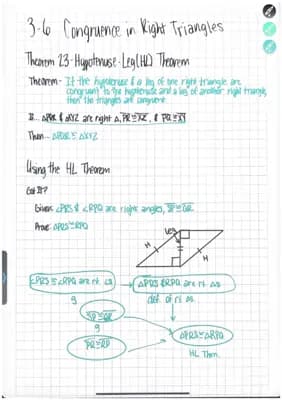 3-6 Congruence in Right Triangles
Theorem 23-Hypotenuse-Leg(HL) Theorem
Theorem- If the hypotenuse & a leg of one right triangle are
congruent to the hypotenuse and a leg of another right triangle,
then the triangles are congruent
If... ΔPQR & ΔXYZ are right Δ, PR≅XZ, & PQ≅XY
Then... ΔPQR≅ΔXYZ
Using the HL Theorem
Got It?
Given: ∠PRS & ∠RPQ are right angles, SP≅QR
Prove: ΔPRS≅ΔRPQ
Leg
H
H
∠PRS≅∠RPQ are rt. ∠s
ΔPRS &RPQ are rt. Δs
g
def. of rt. Δs.
SP≅QR
g
PR≅RP
ΔPRS≅ΔRPQ
HL Thm.